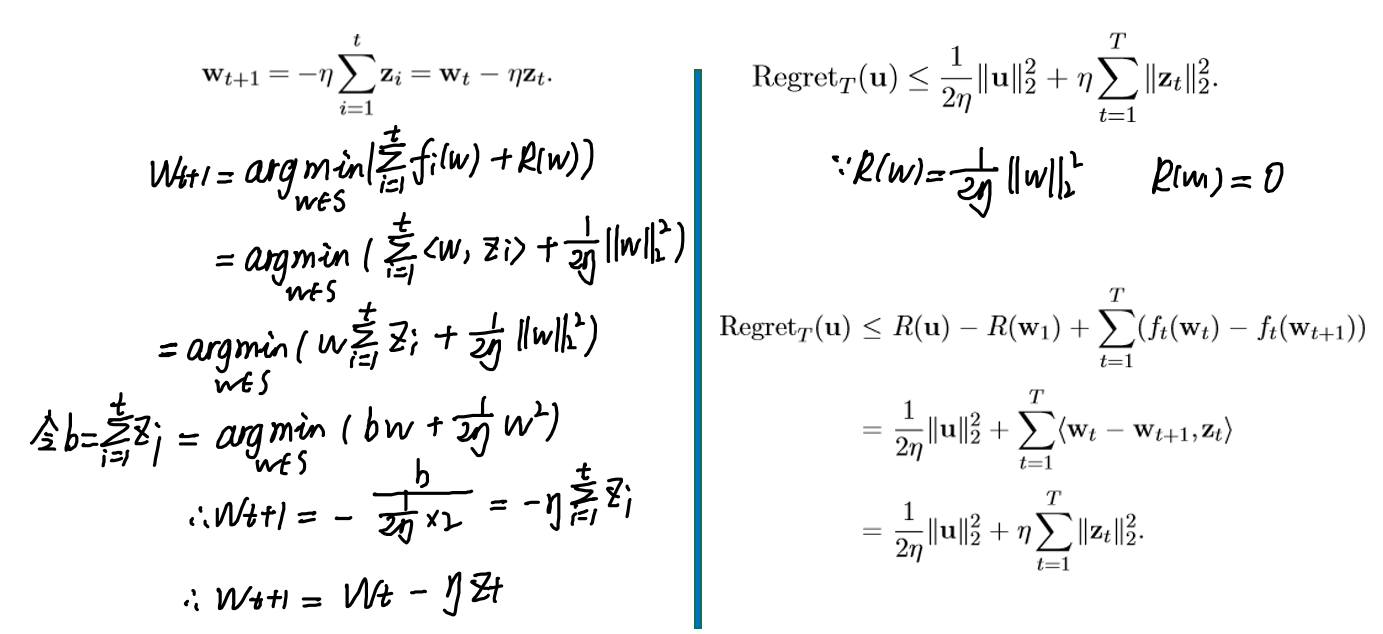 w_{t+1} = −η ∑_{i=1}^{t} z_i = w_t − ηz_t.
W_{t+1} = argmin_{w∈S} (∑_{i=1}^{t} f_i(w) + R(w))
= argmin_{w∈S} (∑_{i=1}^{t} <w, z_i> + 1/(2η) ||w||_2^2)
= argmin_{w∈S} (w ∑_{i=1}^{t} z_i + 1/(2η) ||w||_2^2)
令b=∑_{i=1}^{t} z_i = argmin_{w∈S} (bw + 1/(2η) w^2)
∴W_{t+1} = − b/(1/(2η) ×2) = −η ∑_{i=1}^{t} z_i
∴ W_{t+1} = W_t − ηz_t
Regret_T(u) ≤ 1/(2η) ‖u‖_2^2 + η ∑_{t=1}^{T} ‖z_t‖_2^2.
∵R(w)=1/(2η) ||w||_2^2 R(w_1) = 0
Regret_T(u) ≤ R(u) − R(w_1) + ∑_{t=1}^{T} (f_t(w_t) − f_t(w_{t+1}))
= 1/(2η) ‖u‖_2^2 + ∑_{t=1}^{T} ⟨w_t − w_{t+1}, z_t⟩
= 1/(2η) ‖u‖_2^2 + η ∑_{t=1}^{T} ‖z_t‖_2^2.